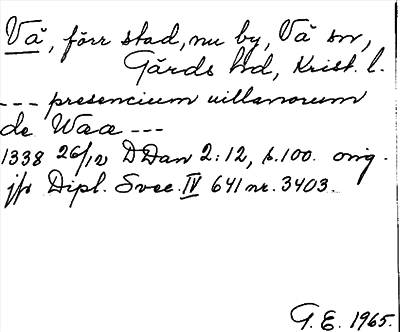 Vä, förr stad, nu by, Vä sn,
Gärds hd, Krist. l.
--- presencium uillanorum
de Waa ---
1338 26/12 DDan 2:12, s.100. orig.
jfr Dipl. Svec. IV 641 nr. 3403.
G. E. 1965.